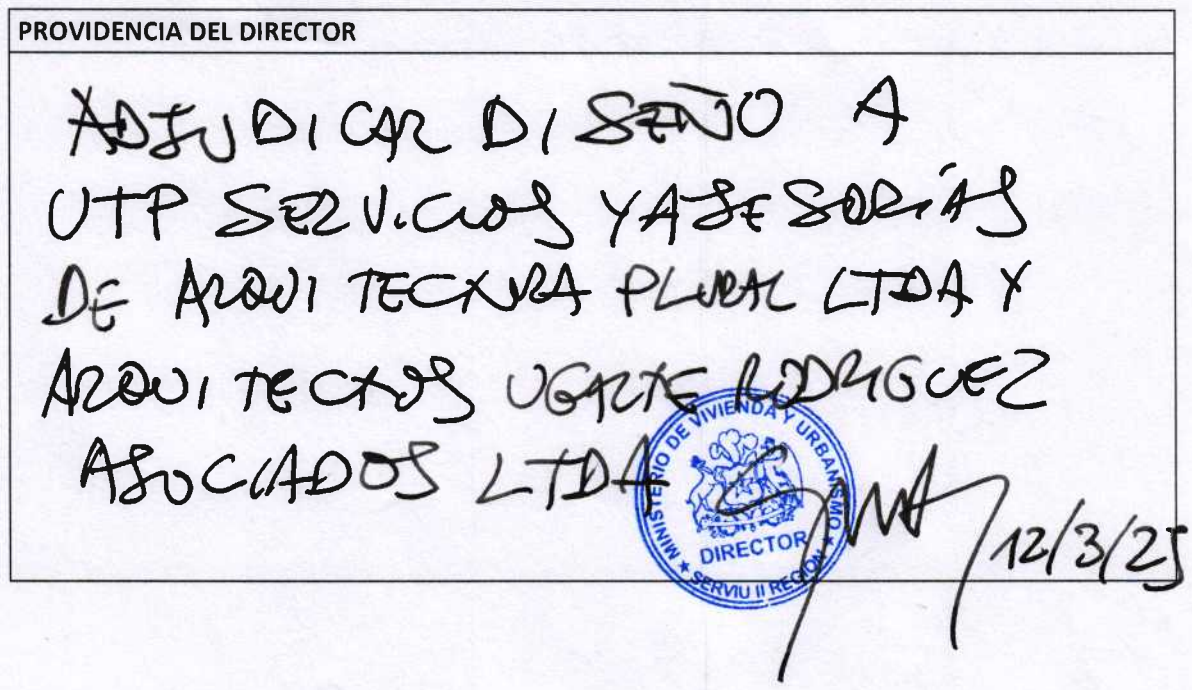 PROVIDENCIA DEL DIRECTOR
ADJUDICAR DISEÑO A
UTP SERVICIOS Y ASESORÍAS
DE ARQUITECTURA PLURAL LTDA Y
ARQUITECTOS UGARTE RODRIGUEZ
ASOCIADOS LTDA
MINISTERIO DE VIVIENDA Y URBANISMO
DIRECTOR
SERVIU II REGION
12/3/25